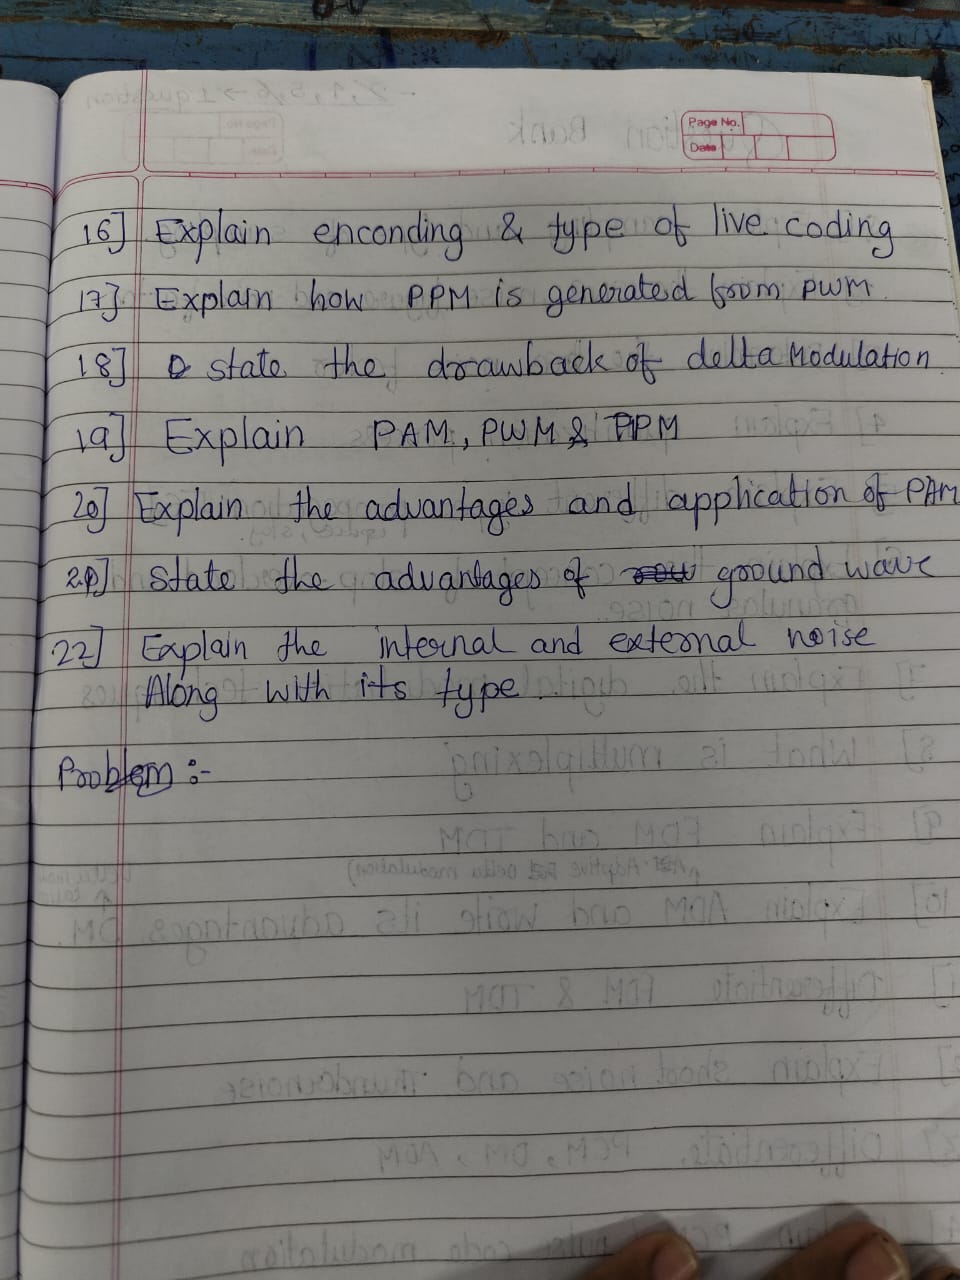 Page No.
Date
16] Explain enconding & type of live coding
17] Explain how PPM is generated from PWM
18] state the drawback of delta Modulation
19] Explain PAM, PWM & PPM
20] Explain the advantages and application of PAM
21] state the advantages of ground wave
22] Explain the internal and external noise
Along with its type
Problem :-